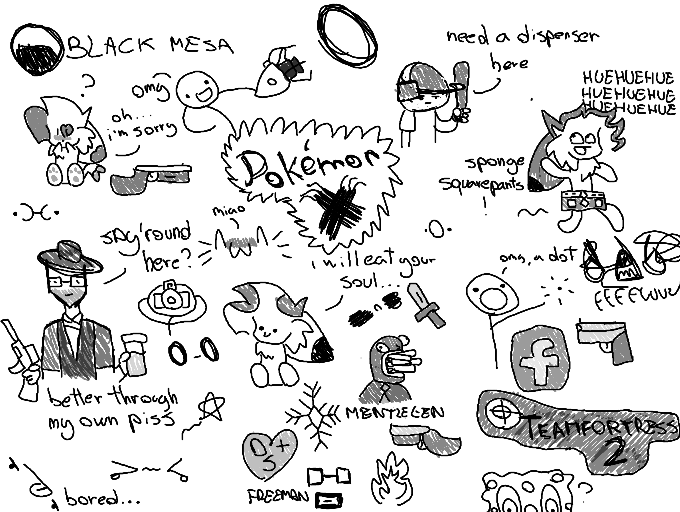 BLACK MESA
need a dispenser
here
omg
?
oh...
i'm sorry
HUEHUEHUE
HUEHUEHUE
HUEHUEHUE
Pokémon
X
sponge
squarepants
!
miao
say 'round
here?
i will eat your
soul...
omg, a dot
EEEEWWW
f
better through
my own piss
MENTLEGEN
TEAMFORTRESS
2
D+
S
FREEMAN
bored...
?